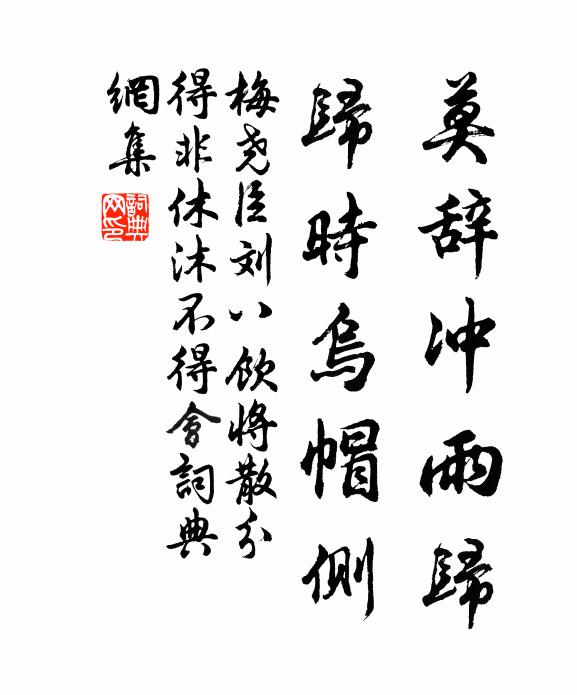 莫辞冲雨歸
歸時烏帽側
梅尧臣刘八飲將散分
得非休沐不得會詞典
網集
詞典
网印